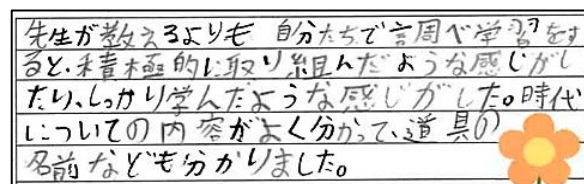 先生が教えるよりも 自分たちで調べ学習をす
ると、積極的に取り組んだような感じがし
たり、しっかり学んだような感じがした。時代
についての内容がよく分かって、道具の
名前なども分かりました。